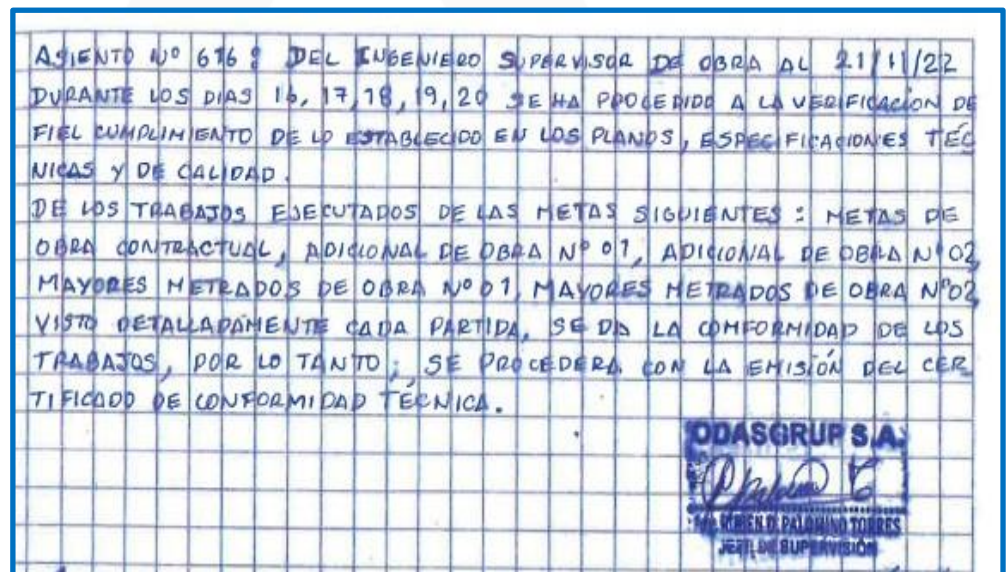 ASIENTO Nº 616: DEL INGENIERO SUPERVISOR DE OBRA AL 21/11/22
DURANTE LOS DIAS 16, 17, 18, 19, 20 SE HA PROCEDIDO A LA VERIFICACION DE
FIEL CUMPLIMIENTO DE LO ESTABLECIDO EN LOS PLANOS, ESPECIFICACIONES TÉC
NICAS Y DE CALIDAD.
DE LOS TRABAJOS EJECUTADOS DE LAS METAS SIGUIENTES: METAS DE
OBRA CONTRACTUAL, ADICIONAL DE OBRA Nº 01, ADICIONAL DE OBRA Nº 02,
MAYORES METRADOS DE OBRA Nº 01, MAYORES METRADOS DE OBRA Nº 02,
VISTO DETALLADAMENTE CADA PARTIDA, SE DA LA COMFORMIDAD DE LOS
TRABAJOS, POR LO TANTO; SE PROCEDERA CON LA EMISIÓN DEL CER
TIFICADO DE CONFORMIDAD TÉCNICA.
ODASGRUP S.A.
RUBEN D. PALOMINO TORRES
JEFE DE SUPERVISIÓN